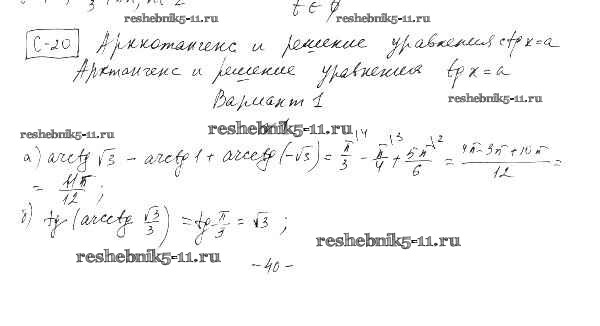 t ∈ ∅
reshebnik5-11.ru
С-20 Арккотангенс и решение уравнения ctg x = a
Арктангенс и решение уравнения tg x = a
reshebnik5-11.ru
Вариант 1
reshebnik5-11.ru
reshebnik5-11.ru
а) arctg √3 - arctg 1 + arcctg (-√3) = π/3 \4 - π/4 \3 + 5π/6 \2 = (4π - 3π + 10π)/12 =
= 11π/12 ;
б) tg (arcctg √3/3) = tg π/3 = √3 ;
reshebnik5-11.ru
reshebnik5-11.ru
- 40 -